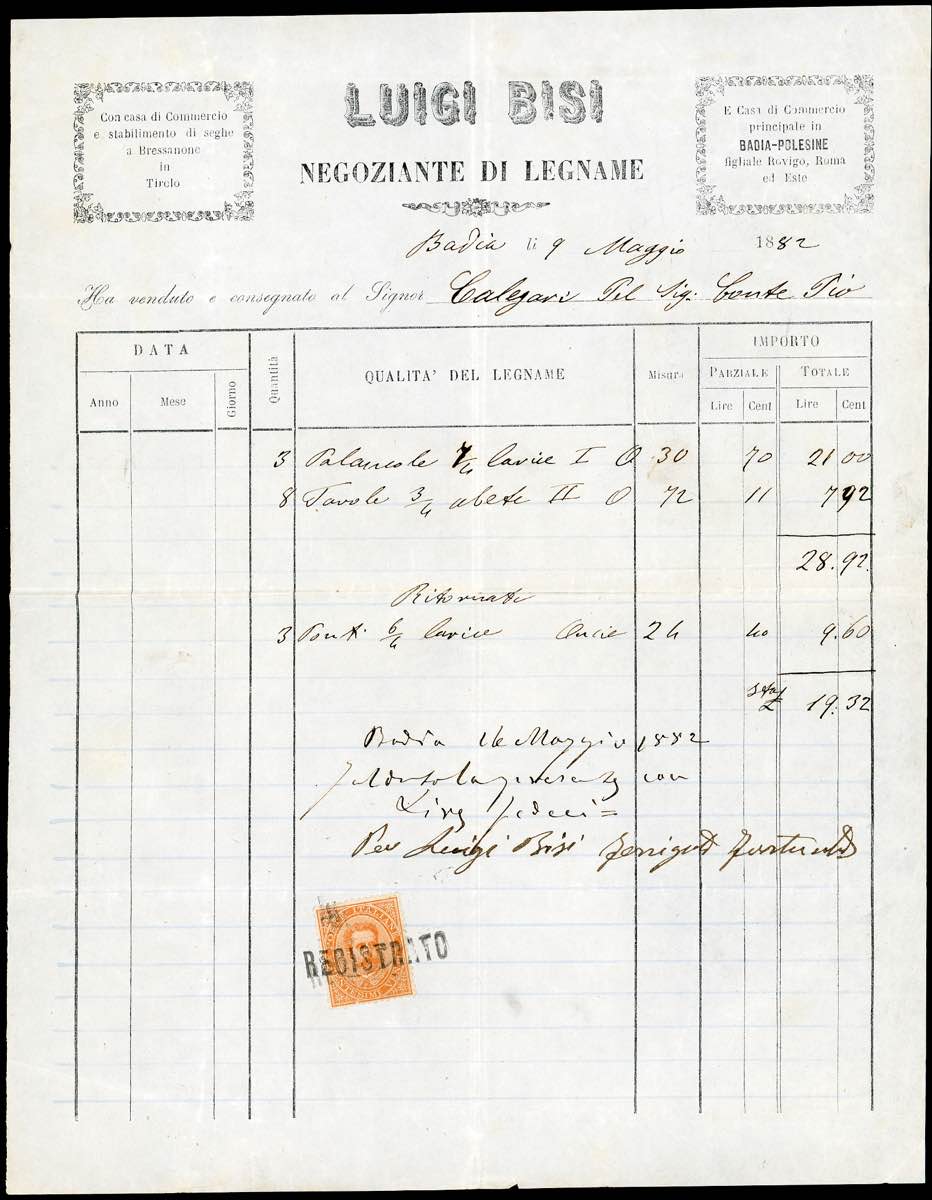 Con casa di Commercio
e stabilimento di seghe
a Bressanone
in
Tirolo
LUIGI BISI
NEGOZIANTE DI LEGNAME
E Casa di Commercio
principale in
BADIA-POLESINE
figliale Rovigo, Roma
ed Este
Badia li 9 Maggio 1882
Ha venduto e consegnato al Signor Calegari Pel Sig: Conte Pio
DATA
Anno Mese Giorno
Quantità
QUALITA' DEL LEGNAME
Misura
IMPORTO
PARZIALE TOTALE
Lire Cent Lire Cent
3 Palancole 7/4 larice I O 30 70 21 00
8 Tavole 3/4 abete II O 72 11 7 92
28.92
Ritornate
3 Ponti 6/4 larice Oncie 24 40 9.60
19.32
Badia 16 Maggio 1882
con
Lire
Per Luigi Bisi
REGISTRATO